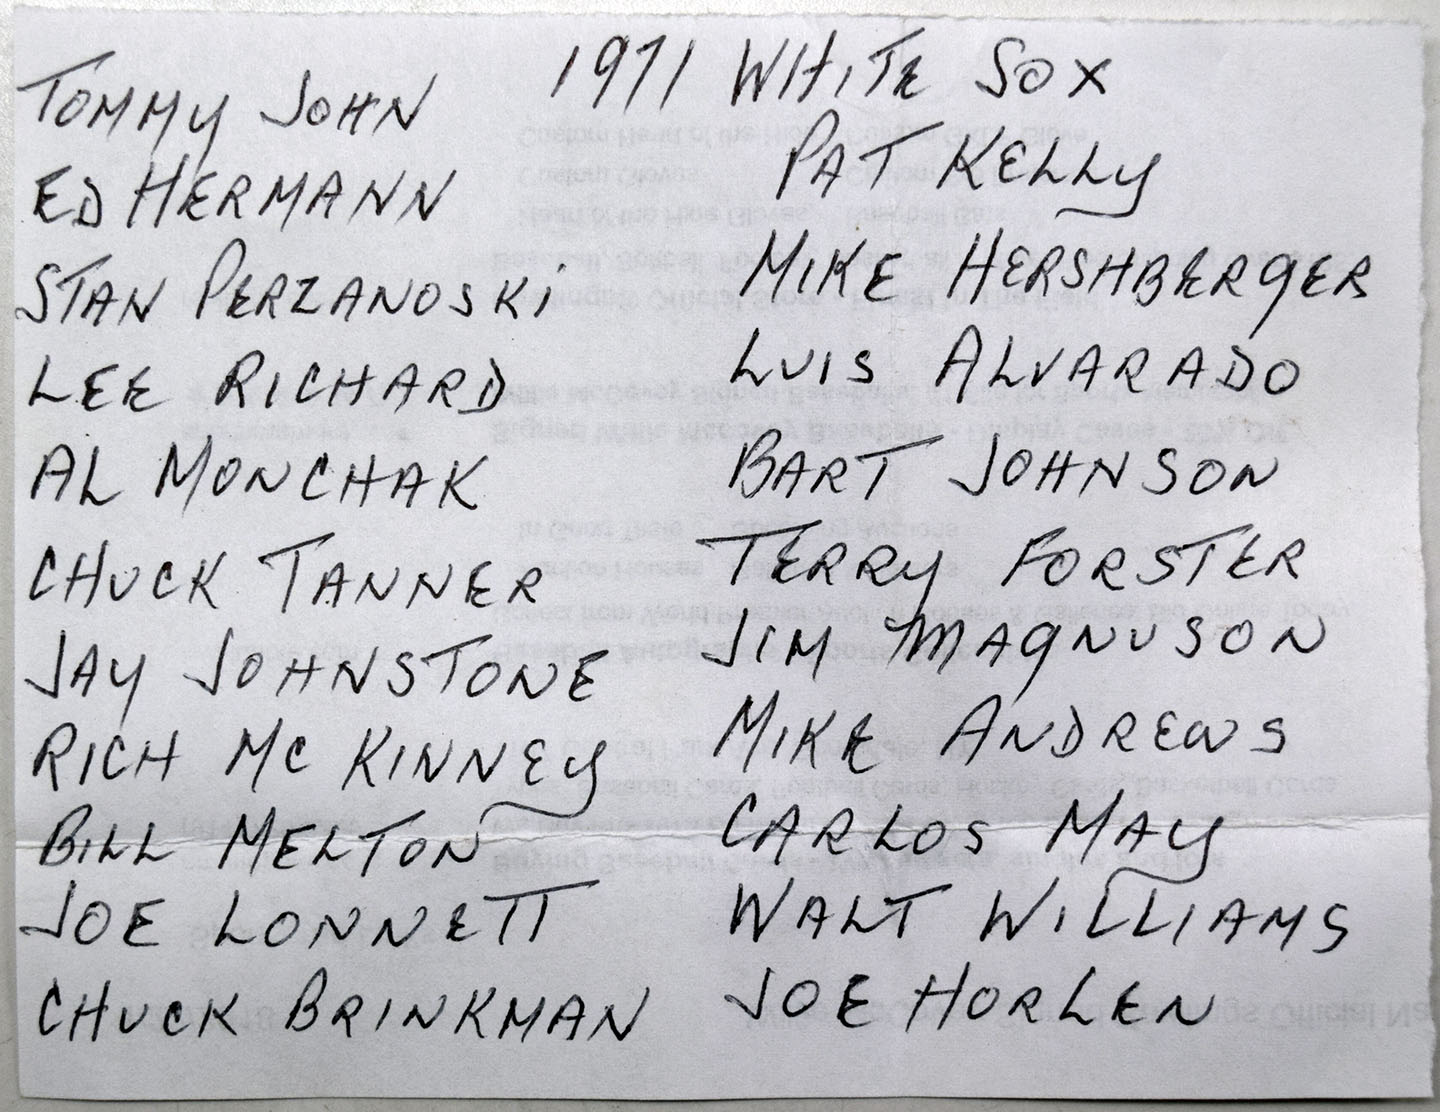 1971 WHITE SOX
TOMMY JOHN
ED HERMANN
STAN PERZANOSKI
LEE RICHARD
AL MONCHAK
CHUCK TANNER
JAY JOHNSTONE
RICH MCKINNEY
BILL MELTON
JOE LONNETT
CHUCK BRINKMAN
PAT KELLY
MIKE HERSHBERGER
LUIS ALVARADO
BART JOHNSON
TERRY FORSTER
JIM MAGNUSON
MIKE ANDREWS
CARLOS MAY
WALT WILLIAMS
JOE HORLEN